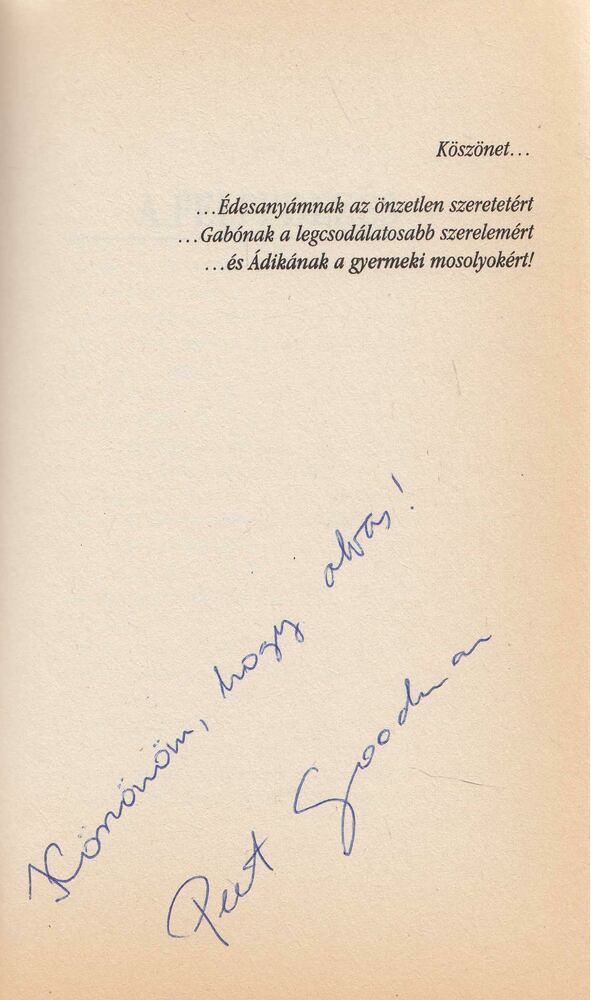 Köszönet…
…Édesanyámnak az önzetlen szeretetért
…Gabónak a legcsodálatosabb szerelemért
…és Ádikának a gyermeki mosolyokért!
Köszönöm, hogy olvas!
Peet Goodman